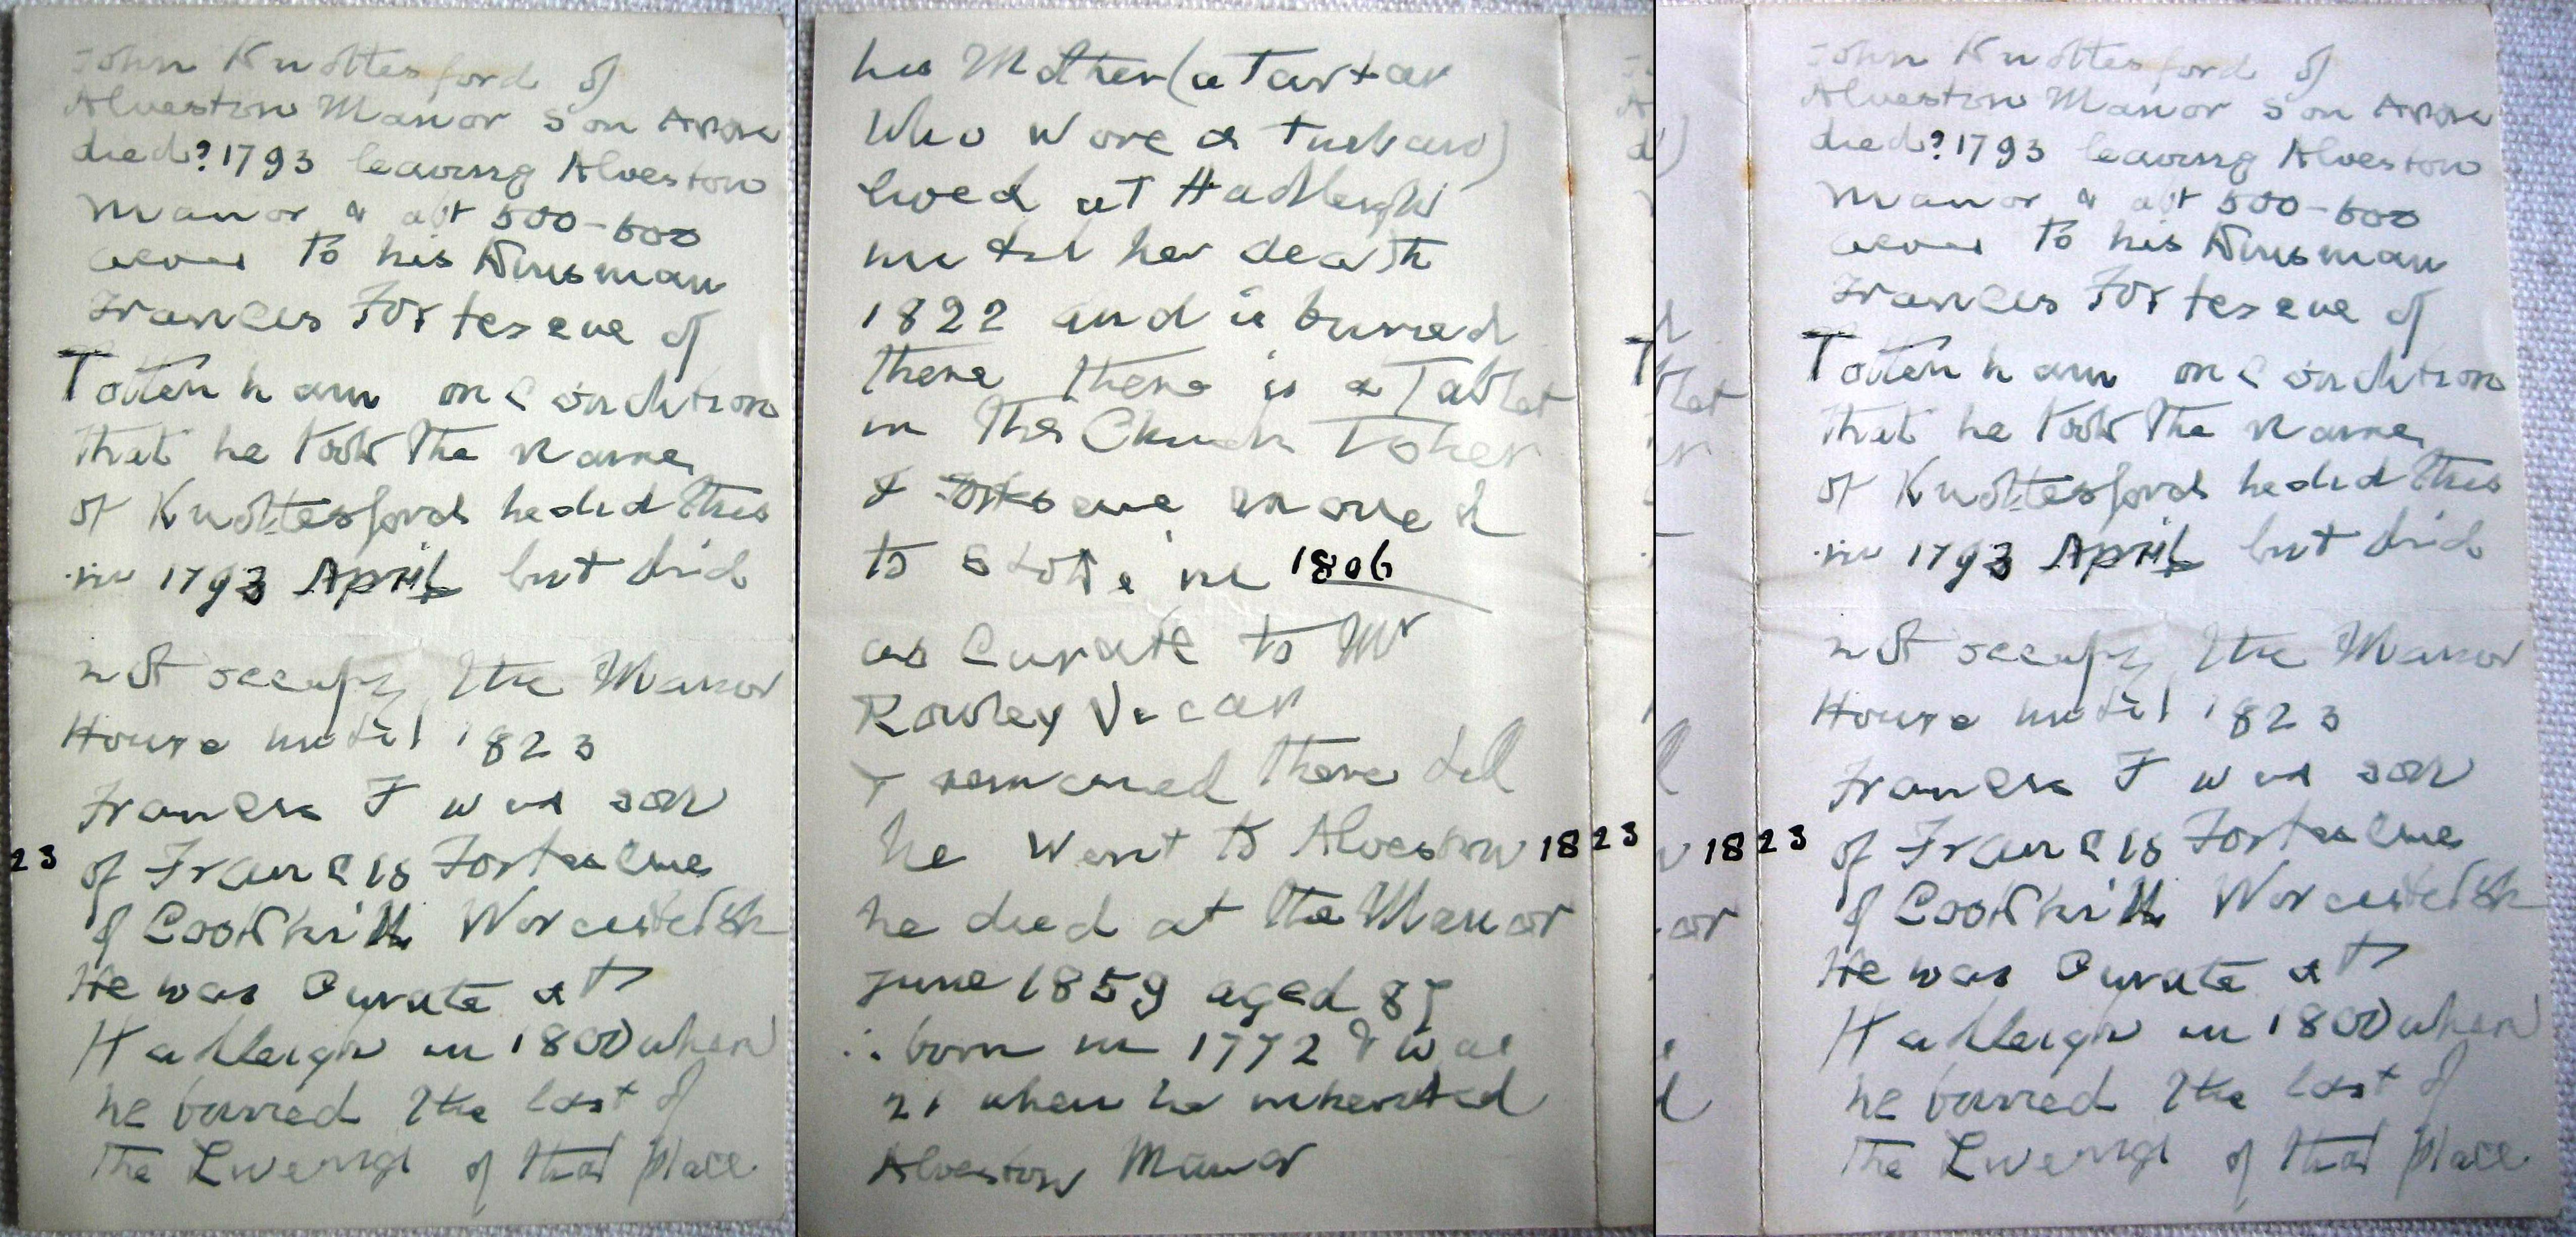 John Knottesford of
Alveston Manor S on Avon
died? 1793 leaving Alveston
Manor & abt 500-600
acres to his Kinsman
Frances Fortescue of
Tottenham on condition
that he took the Name
of Knottesford he did this
in 1793 April but did
not occupy the Manor
House until 1823
Francis F was son
of Francis Fortescue
of Cookhill Worcestersh
He was Curate at
Hadleigh in 1800 when
he buried the last of
The of that place
his Mother (a Tartar
who wore a turban)
lived at Hadleigh
until her death
1822 and is buried
there there is a Tablet
in the Church To her
& Fortescue moved
to Stoke in 1806
as Curate to Mr
Rowley Vicar
& remained there till
he went to Alveston 1823
he died at the Manor
June 1859 aged 87
∴ born in 1772 & was
21 when he inherited
Alveston Manor
John Knottesford of
Alveston Manor S on Avon
died? 1793 leaving Alveston
Manor & abt 500-600
acres to his Kinsman
Frances Fortescue of
Tottenham on condition
that he took the Name
of Knottesford he did this
in 1793 April but did
not occupy the Manor
House until 1823
Francis F was son
1823 of Francis Fortescue
of Cookhill Worcestersh
He was Curate at
Hadleigh in 1800 when
he buried the last of
The of that place